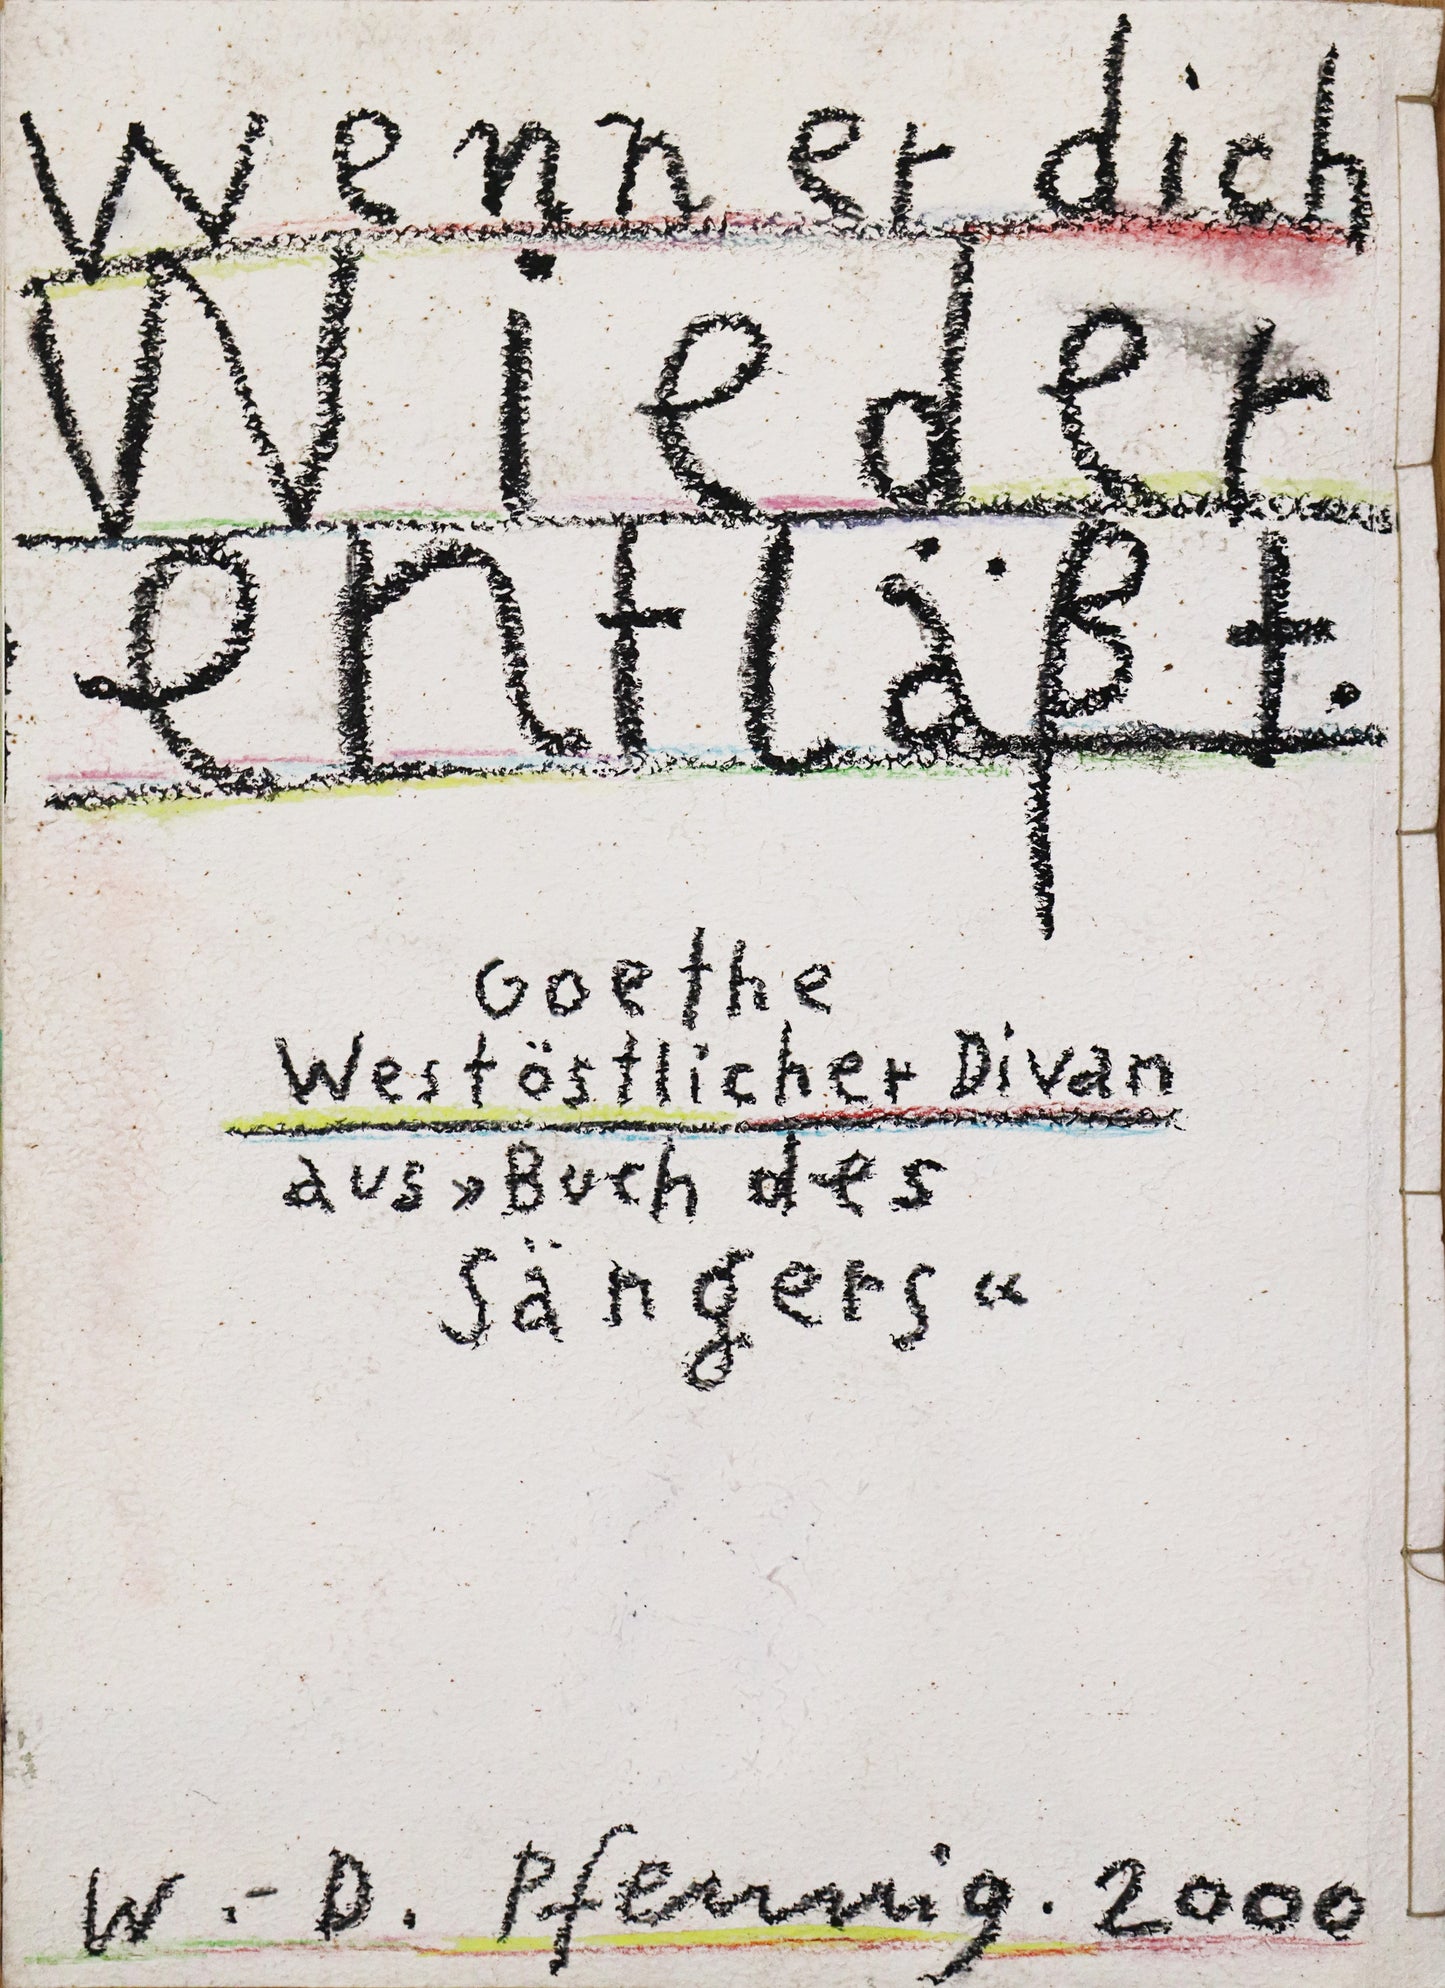 Wenn er dich
Wieder
entläßt.
Goethe
Westöstlicher Divan
aus »Buch des
Sängers«
W.-D. Pfennig. 2000